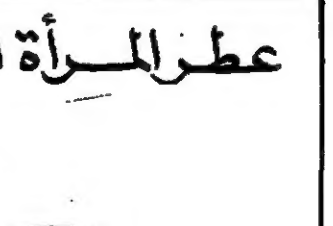 عطر المرأة